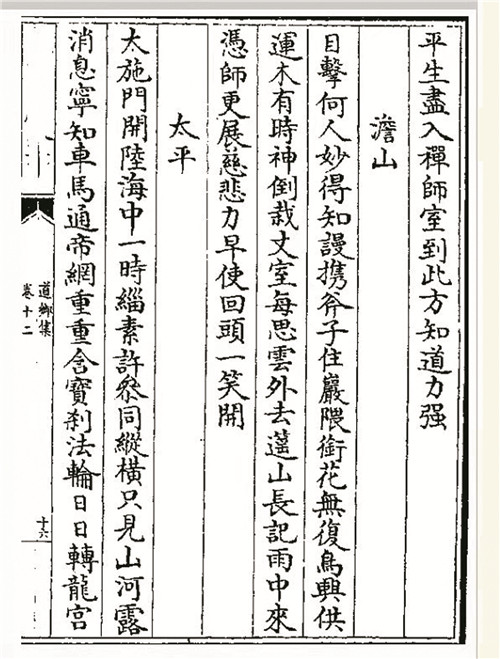 平生盡入禪師室到此方知道力强
澹山
目擊何人妙得知謾携斧子住巖隈銜花無復鳥興供
運木有時神倒栽丈室每思雲外去蓬山長記雨中來
憑師更展慈悲力早使回頭一笑開
太平
太施門開陸海中一時緇素許叅同縱橫只見山河露
消息寧知車馬通帝網重重含寶刹法輪日日轉龍宫
道鄉集
卷十二
十六